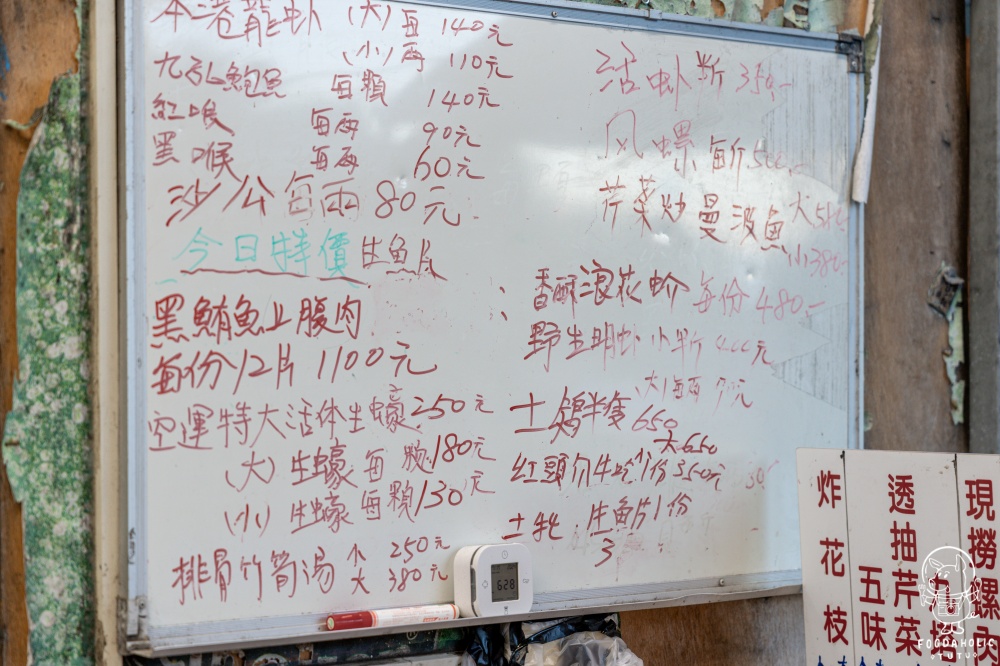 本港龍虾 (大) 每 140元
(小) 两 110元
九孔鮑魚 每顆 140元
紅喉 每両 90元
黑喉 每両 60元
沙公每兩 80元
今日特價 生魚片
黑鮪魚上腹肉
每份12片 1100元
空運特大活体生蠔250元
(大) 生蠔 每 顆 180元
(小) 生蠔 每顆 130元
排骨竹筍湯 小 250元
大 380元
活虾 斤 350.-
风螺
芹菜炒曼波魚 大
小380-
香酥浪花蚧 每份 480.-
野生明虾 小 半斤 400元
大
土鷄半隻 650
大 650
小份 350元
生魚片1份
3
628
炸花枝
透抽芹菜
五味
現撈螺
FOODAHOLIC
TUTU